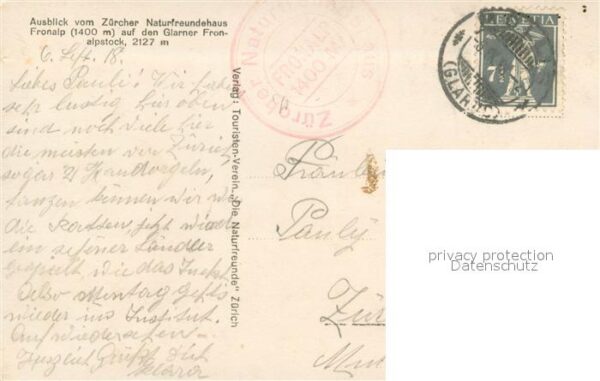 Ausblick vom Zürcher Naturfreundehaus
Fronalp (1400 m) auf den Glarner Fron-
alpstock, 2127 m
6. Sept. 18.
Liebes Pauli! Wir haben
sehr lustig hier oben
sind noch viele hier
die meisten von Zürich,
sogar 2 Handorgeln,
tanzen können wir wie
die Ratten, jetzt wird
ein schöner Ländler
gespielt wie das
Also Montag geht's
wieder ins Institut.
Auf wiedersehen
Herzlich Grüsst Dich
Klara
Verlag: Touristen-Verein „Die Naturfreunde" Zürich
Zürcher Natur
haus
FRONALP
1400 M
HELVETIA
7½
(GLARUS)
Fräulein
Pauly
Zür
privacy protection
Datenschutz